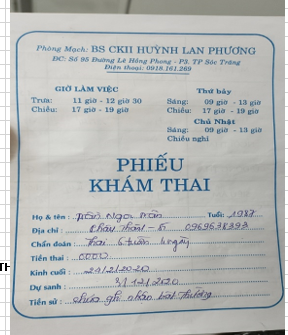 Phòng Mạch: BS CKII HUỲNH LAN PHƯƠNG
ĐC: Số 95 Đường Lê Hồng Phong - P3. TP Sóc Trăng
Điện thoại: 0918.161.269
GIỜ LÀM VIỆC
Trưa: 11 giờ - 12 giờ 30
Chiều: 17 giờ - 19 giờ
Thứ bảy
Sáng: 09 giờ - 13 giờ
Chiều: 17 giờ - 19 giờ
Chủ Nhật
Sáng: 09 giờ - 13 giờ
Chiều nghỉ
PHIẾU
KHÁM THAI
Họ & tên : Trần Ngọc Trân Tuổi: 1987
Địa chỉ : Châu Thành - 0969638393
Chẩn đoán : Thai 6 tuần ngày
Tiền thai : 0000
Kinh cuối : 24/2/2020
Dự sanh : 3/12/2020
Tiền sử : chưa ghi nhận bất thường
TH